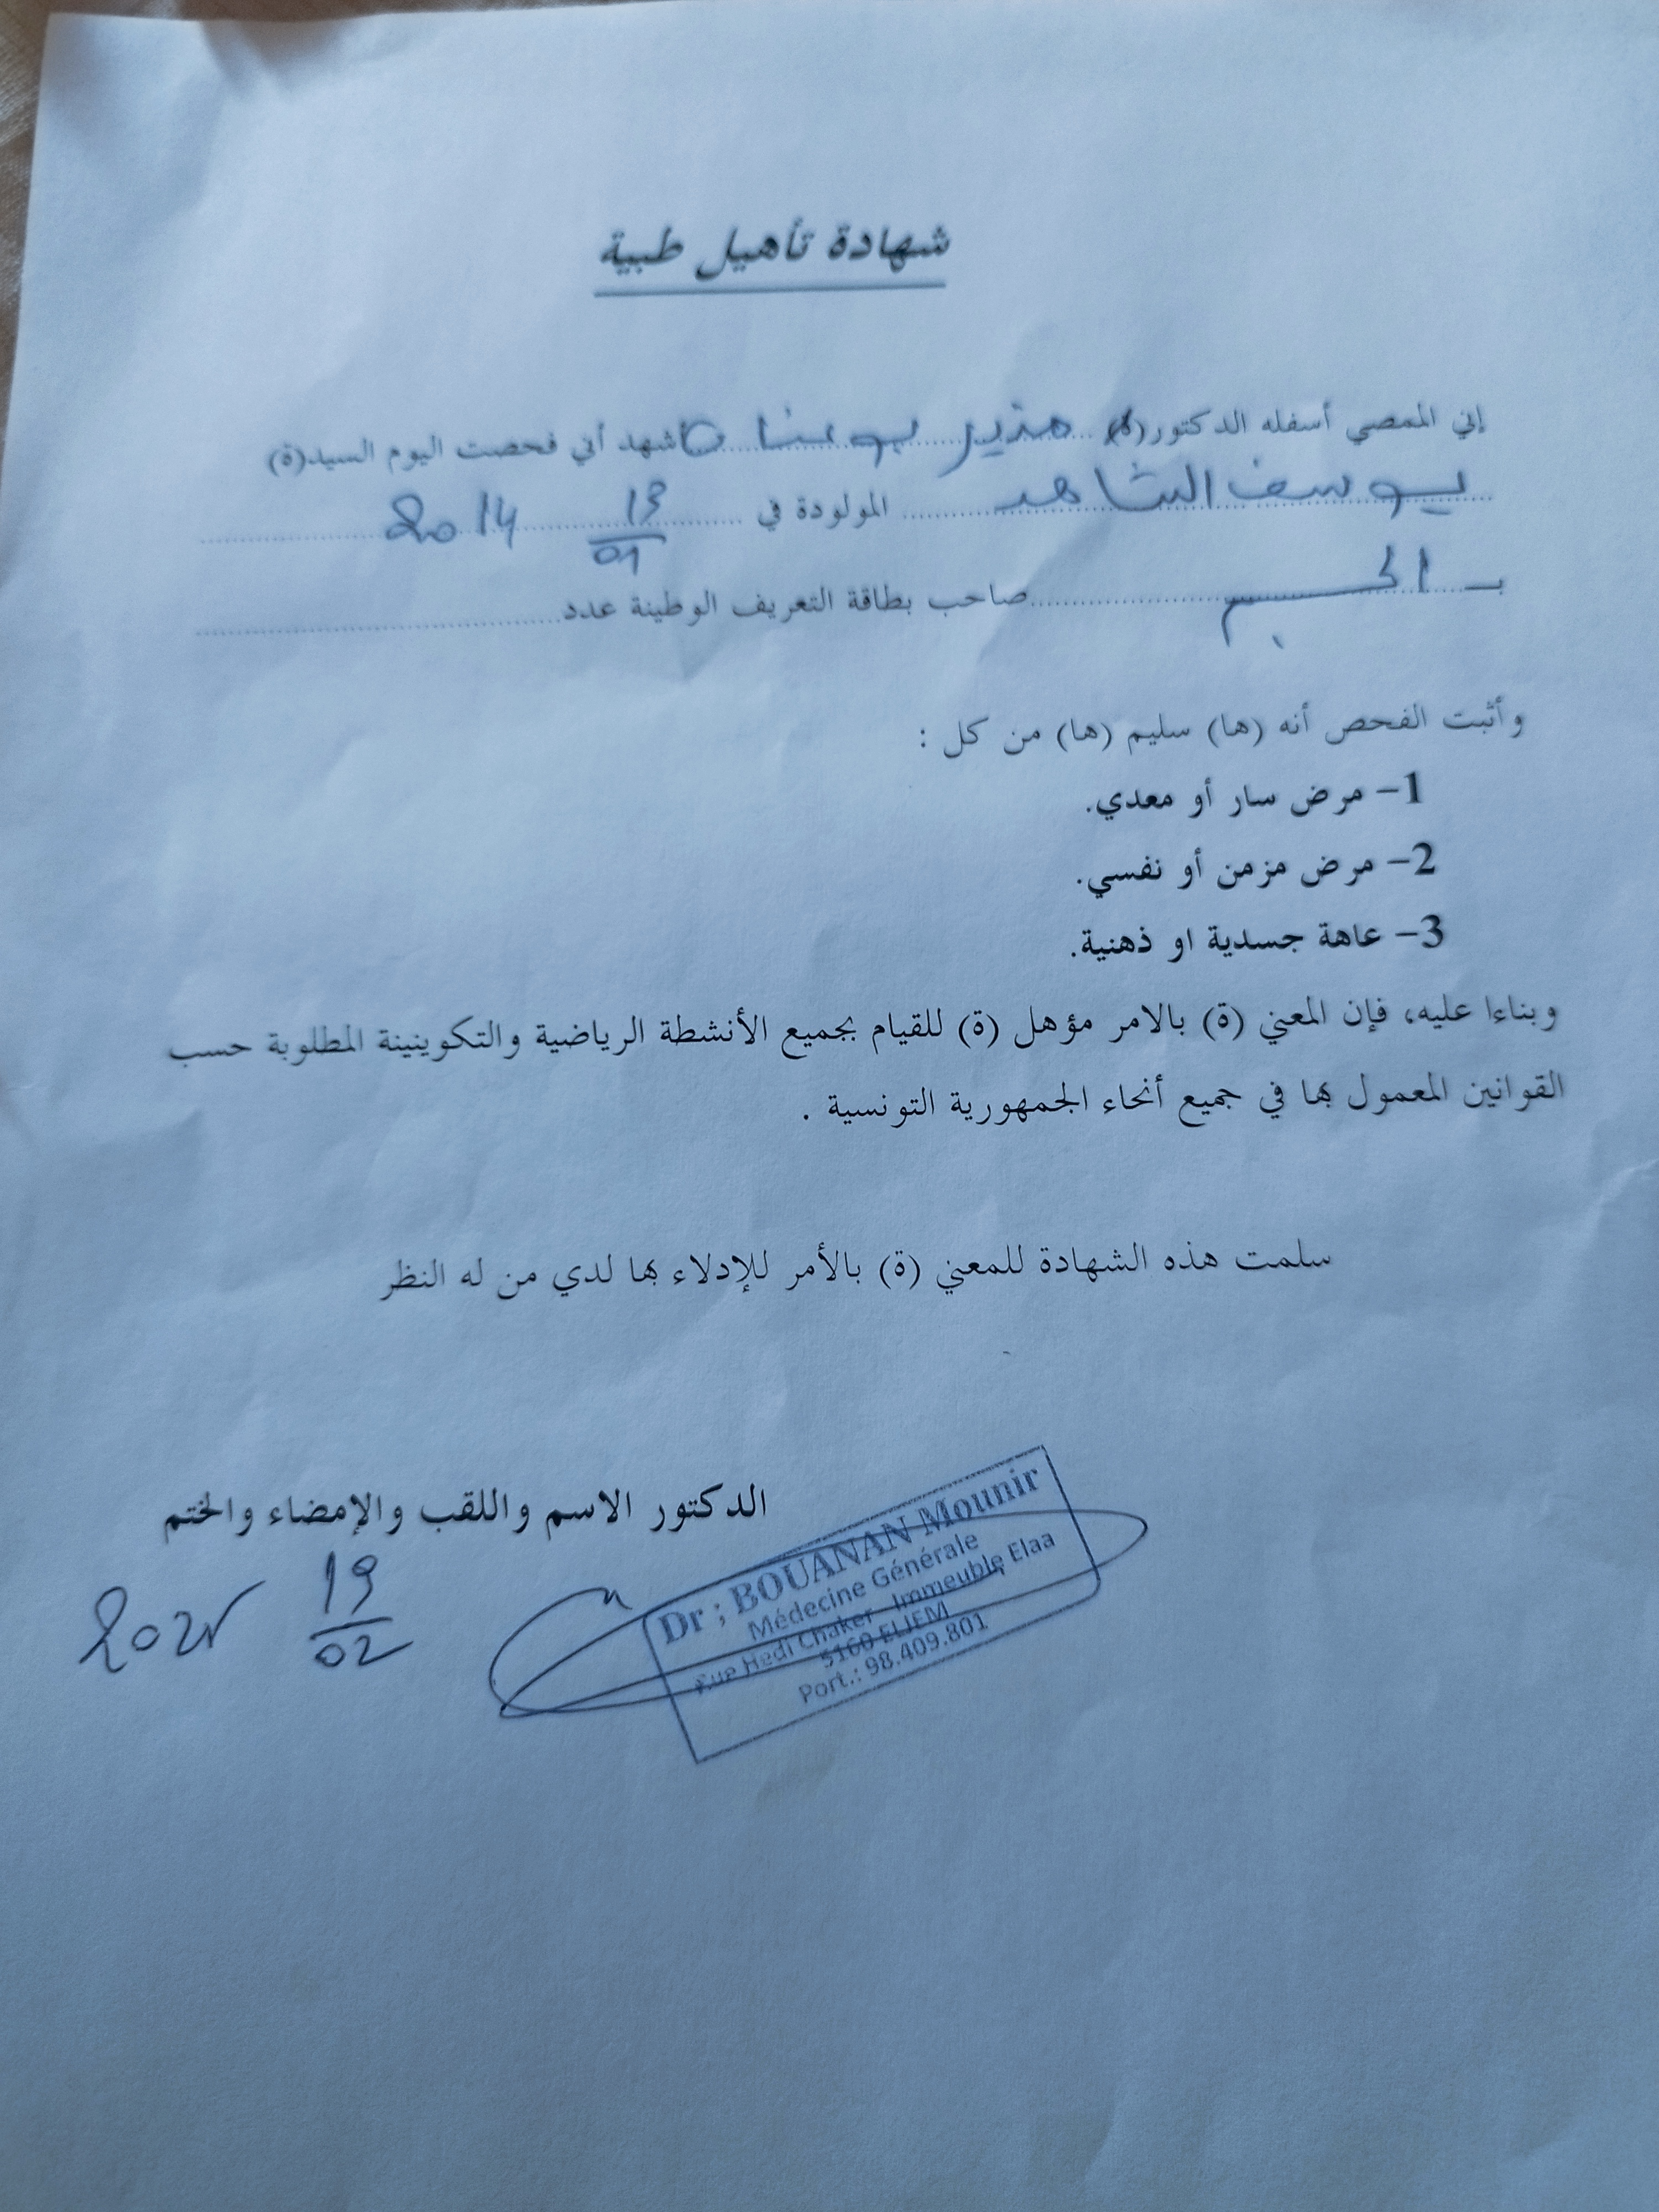 شهادة تأهيل طبية
إني الممضي أسفله الدكتور(ة) منير بوعنان أشهد أني فحصت اليوم السيد(ة)
يوسف الشاهد المولودة في 13/01 2014
بـ الجم صاحب بطاقة التعريف الوطنية عدد
وأثبت الفحص أنه (ها) سليم (ها) من كل :
1- مرض سار أو معدي.
2- مرض مزمن أو نفسي.
3- عاهة جسدية او ذهنية.
وبناءا عليه، فإن المعني (ة) بالامر مؤهل (ة) للقيام بجميع الأنشطة الرياضية والتكوينية المطلوبة حسب
القوانين المعمول بها في جميع أنحاء الجمهورية التونسية .
سلمت هذه الشهادة للمعني (ة) بالأمر للإدلاء بها لدي من له النظر
الدكتور الاسم واللقب والإمضاء والختم
19/02 2025
Dr ; BOUANAN Mounir
Médecine Générale
Rue Hedi Chaker - Immeuble Elaa
5160 ELJEM
Port.: 98.409.801